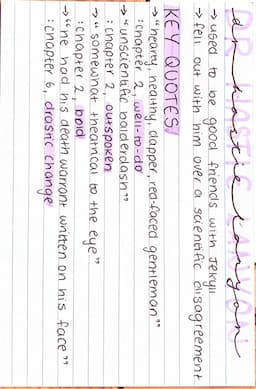 dr hastie lanyon
→ used to be good friends with Jekyll
→ fell out with him over a scientific disagreement
KEY QUOTES
→ "hearty, healthy, dapper, red-faced gentleman"
: chapter 2, well-to-do
→ "unscientific balderdash"
: chapter 2, outspoken
→ "somewhat theatrical to the eye"
: chapter 2, bold
→ "he had his death warrant written on his face"
: chapter 6, drastic change